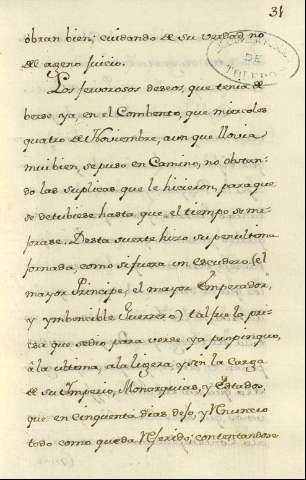 31
obran bien; cuidando de su verdad, no
del ageno juicio.
DE
TOLEDO
Los fervorosos deseos, que tenia de
verse ya, en el Combento, que miercoles
quatro de Noviembre, aun que llovia
mui bien, se puso en Camino, no obstan-
do las suplicas que le hicieron, para que
se detubiese hasta que, el tiempo se me-
jorase. Desta suerte hizo su penultima
jornada, como si fuera un escudero (el
mayor Principe, el mayor Emperador,
y ymbencible Guerrero) tal fue la pri-
sa que se dio para verse ya propinquo,
â la ultima, a la ligera, y sin la Carga
de su Imperio, Monarquias, y Estados
que en cinquenta dias dejo, y Renuncio
todo como queda Referido; contentandose